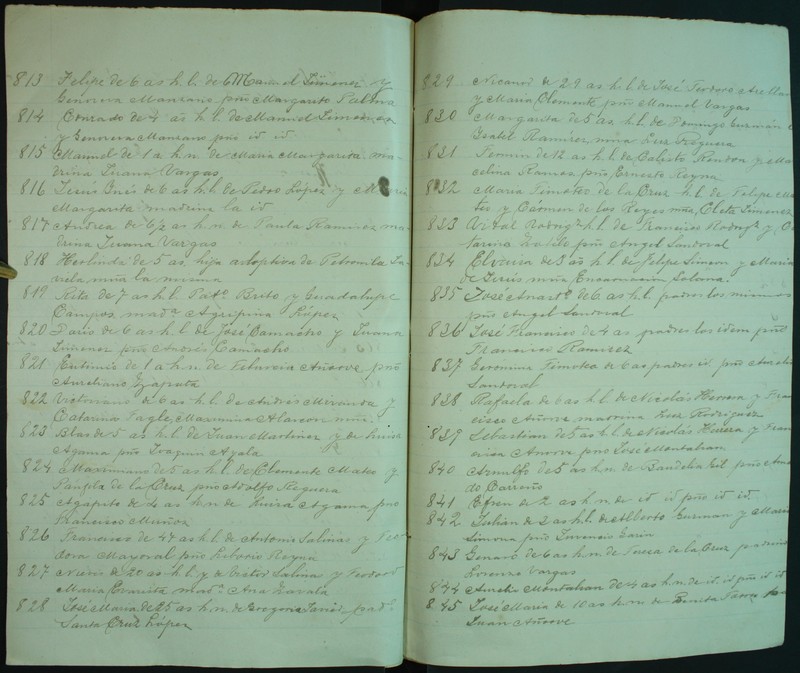 813 Felipe de 6 as h. l. de Manuel Jimenez y
Genoveva Manzano pño Margarito Palma
814 Conrado de 4 as h. l. de Manuel Jimenez
y Genoveva Manzano pño id id.
815 Manuel de 1 a h. n. de Maria Margarita ma-
drina Susana Vargas
816 Jesus de 6 as h. l. de Pedro López y Maria
Margarita madrina la id
817 Andrea de 6/2 as h. n. de Paula Ramirez ma-
drina Susana Vargas
818 Herlinda de 5 as, hija adoptiva de Petronila
mña la misma
819 Rita de 7 as h. l. Pat.º Brito y Guadalupe
Campos mad.ª Agripina López
820 Dario de 6 as h. l. de José Camacho y Juana
Jimenez pño Andrés Camacho
821 Eutimio de 1 a h. n. de Añorve pño
Aureliano
822 Victoriano de 6 as h. l. de Andrés Miranda y
Catarina Tagle, Maximina Alarcon mña.
823 Blas de 5 as h. l. de Juan Martinez y de Luisa
Agama pño Joaquin Ayala
824 Maximiano de 5 as h. l. de Clemente Mateo y
de la Cruz pño Adolfo Reguera
825 Agapito de 4 as h. n. de Luisa Agama pño
Francisco Muñoz
826 Francisco de 47 as h. l. de Antonio Salinas y Teo-
dora Mayoral pño Liborio Reyna
827 de 20 as h. l. y de Victor Salina y Teodora
Maria mad.ª Ana Zavala
828 José Maria de 25 as h. n. de Gregoria pad.º
Santa Cruz López
829 Nicanor de 29 as h. l. de José Teodoro
y Maria Clemente pño Manuel Vargas
830 Margarita de 5 as h. l. de Domingo Guzmán
Isabel Ramirez mña Luz Reguera
831 Fermin de 12 as h. l. de Calixto Rendon y Mar
celina Ramos pño, Ernesto Reyna
832 Maria Timotea de la Cruz h. l. de Felipe
y Cármen de los Reyes mña, Cleta Jimenez
833 Vidal Rodrigz h. l. de Francisco Rodrigz y
pño Angel Sandoval
834 Elvira de 3 as h. l. de Felipe Simon y Maria
de Jesús mña Encarnacion Solana.
835 José de 6 as h. l. padres los mismos
pño Angel Sandoval
836 José Francisco de 4 as padres los idem pño
Francisco Ramirez
837 Geronima Timotea de 6 as padres id pño
Sandoval
838 Rafaela de 6 as h. l. de Nicolás Herrera y Fran
cisca Añorve madrina Luz Rodriguez
839 Sebastian de 5 as h. l. de Nicolás Herrera y Fran
cisca Añorve pño José Montalvan
840 Arnulfo de 5 as h. n. de Baudelia Gil pño Ama
do Carreño
841 Efren de 2 as h. n. de id id pño id id
842 Julian de 2 as h. l. de Alberto Guzman y Maria
Simona pño
843 Genaro de 6 as h. n. de de la Cruz padrino
Lorenzo Vargas
844 Aurelio Montalvan de 4 as h. n. de id. id pño id id
845 José Maria de 10 as h. n. de Benita
Juan Añorve